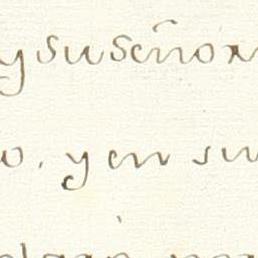 y su señor
o. y en su